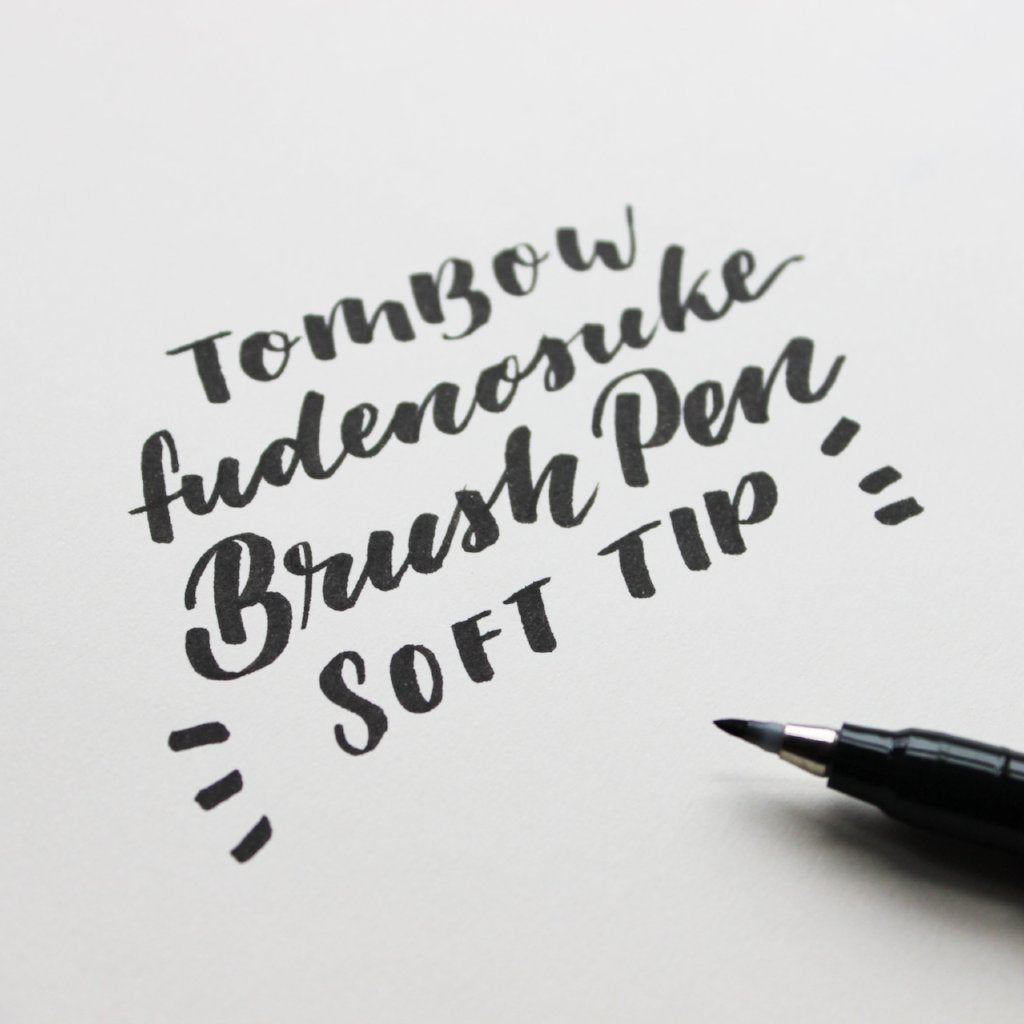 TomBow
fudenosuke
Brush Pen
SOFT TIP